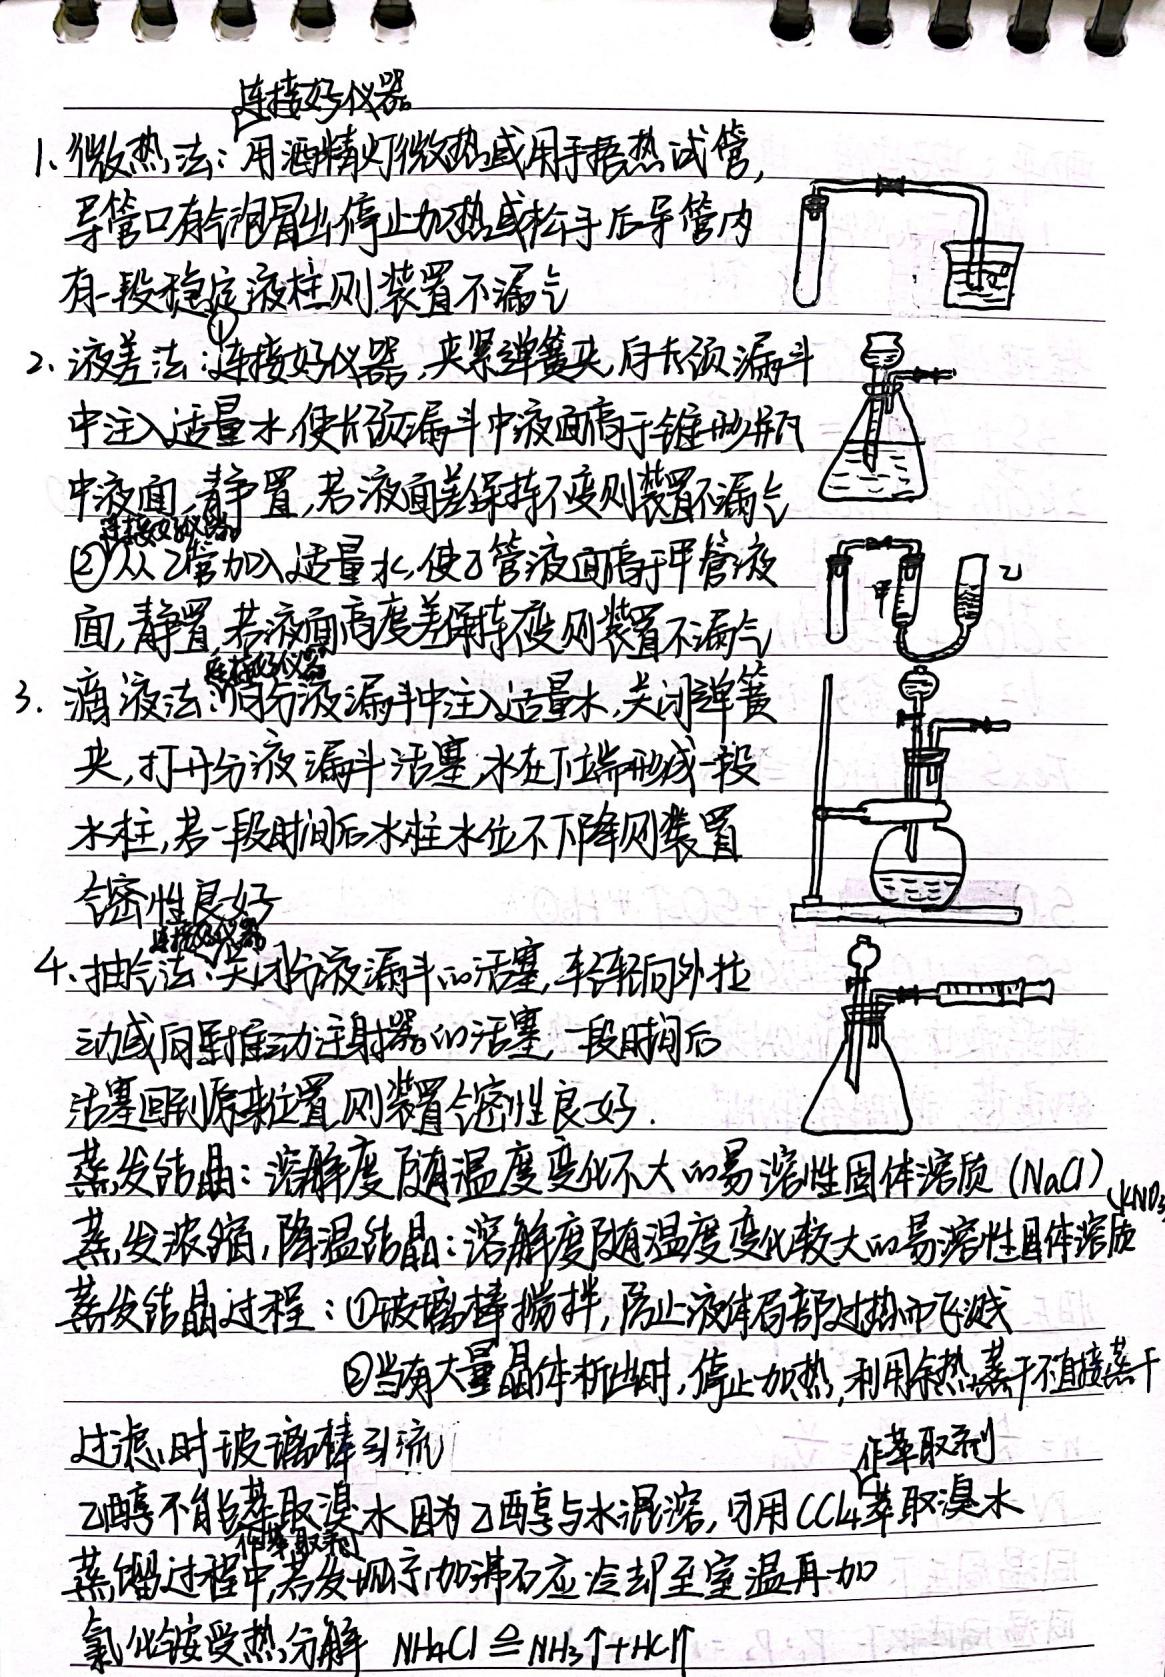 连接好仪器
1. 微热法：用酒精灯微热或用手捂热试管，
导管口有气泡冒出，停止加热或松手后导管内
有一段稳定液柱则装置不漏气
2. 液差法：①连接好仪器，夹紧弹簧夹，向长颈漏斗
中注入适量水，使长颈漏斗中液面高于锥形瓶
中液面，静置，若液面差保持不变则装置不漏气
连接好仪器
②从乙管加入适量水，使乙管液面高于甲管液
甲 乙
面，静置，若液面高度差保持不变，则装置不漏气
连接好仪器
3. 滴液法：向分液漏斗中注入适量水，关闭弹簧
夹，打开分液漏斗活塞，水在下端形成一段
水柱，若一段时间后水柱水位不下降则装置
气密性良好
连接好仪器
4. 抽气法：关闭分液漏斗的活塞，轻轻向外拉
动或向里推动注射器的活塞，一段时间后
活塞回到原来位置，则装置气密性良好.
蒸发结晶：溶解度随温度变化不大的易溶性固体溶质（NaCl）
(KNO3
蒸发浓缩，降温结晶：溶解度随温度变化较大的易溶性固体溶质
蒸发结晶过程：①玻璃棒搅拌，防止液体局部过热而飞溅
②当有大量晶体析出时，停止加热，利用余热蒸干不直接蒸干
过滤时玻璃棒引流
作萃取剂
乙醇不能萃取溴水因为乙醇与水混溶，可用CCl4萃取溴水
作萃取剂
蒸馏过程中，若发现未加沸石应冷却至室温再加
氯化铵受热分解 NH4Cl ≜ NH3↑+HCl↑